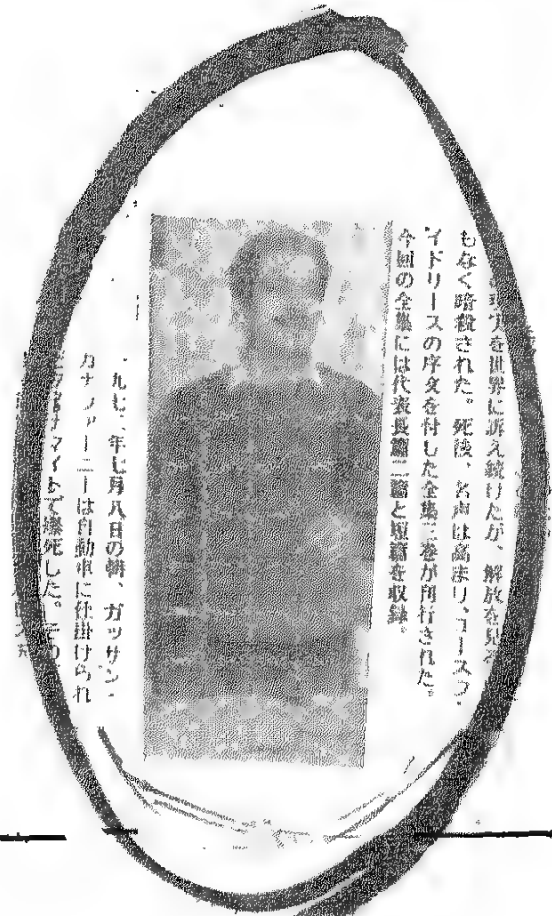 現実を世界に訴え続けたが、解放を見る
もなく暗殺された。死後、名声は高まり、ユースフ・
イドリースの序文を付した全集三巻が刊行された。
今回の全集には代表長篇二篇と短篇を収録。
九七二年七月八日の朝、ガッサン・
カナファーニーは自動車に仕掛けられ
ナマイトで爆死した。